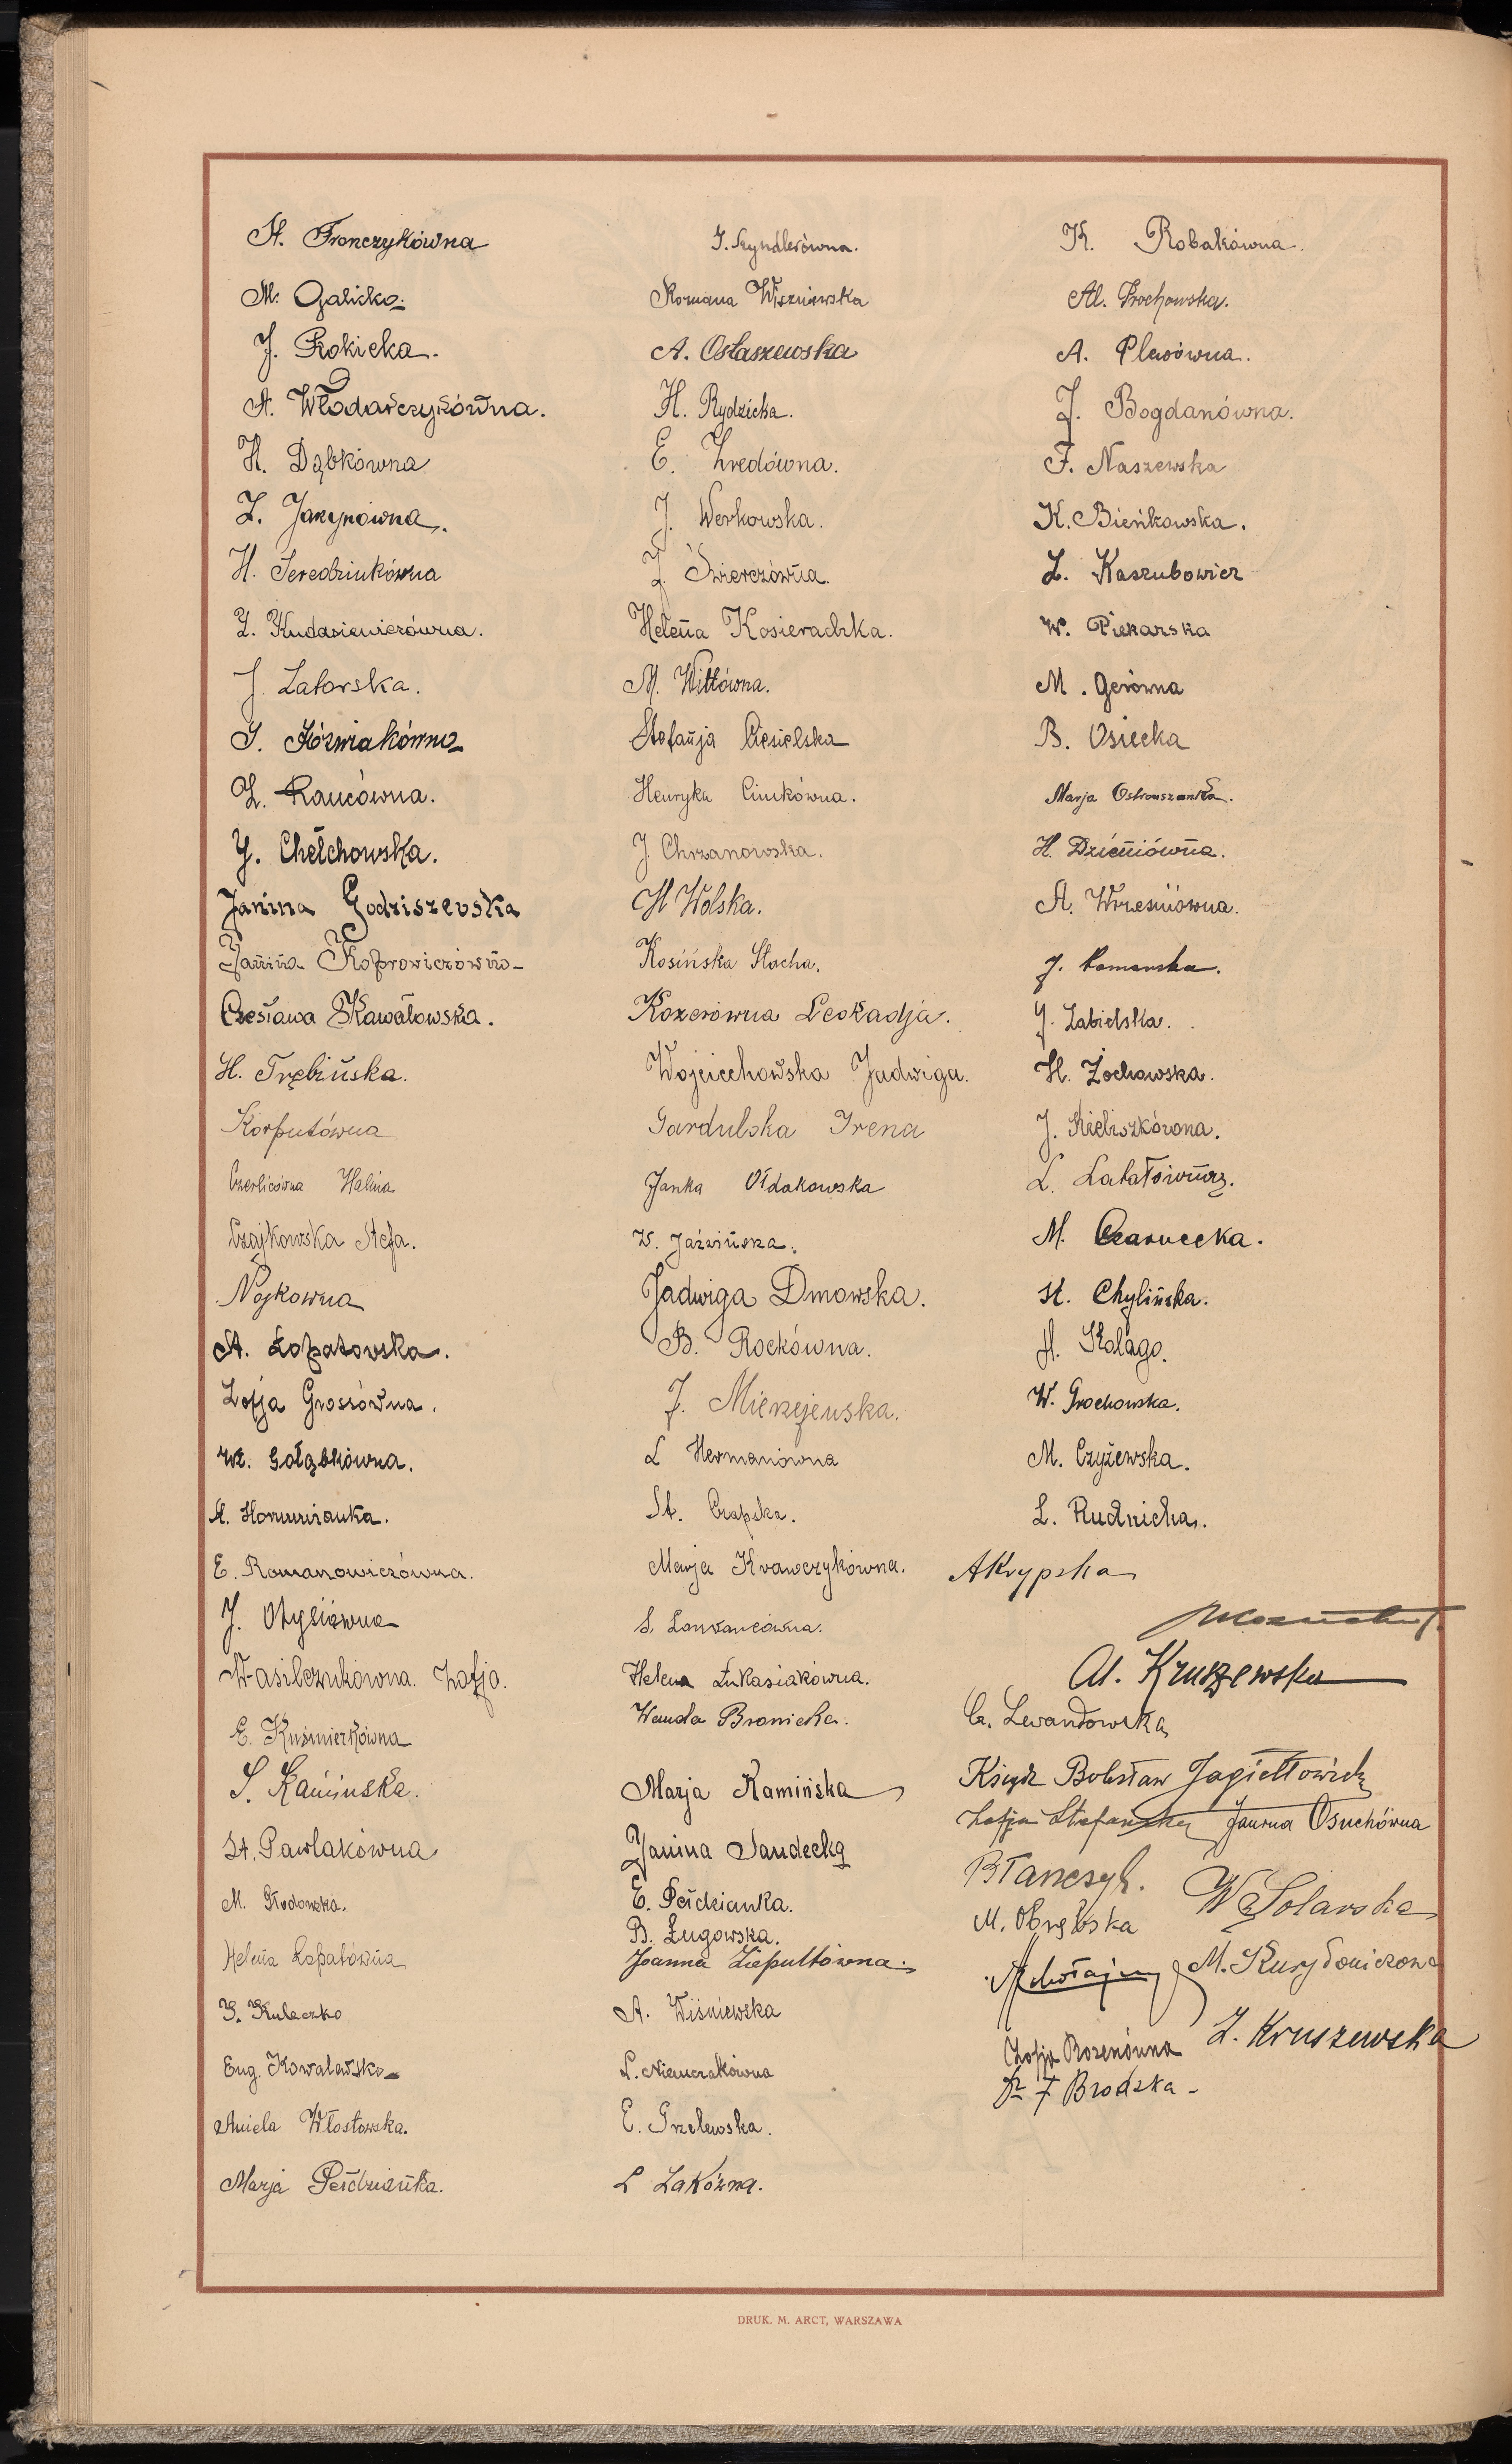 St. Fronczykówna
M. Galicka.
J. Rokicka.
A. Włodarczykówna.
H. Dąbkówna
Z. Jarzynówna.
H. Seredziukówna
Z. Kudasiewiczówna.
J. Zatorska.
J. Jóźwiakówna
Z. Rancówna.
J. Chełchowska.
Janina Godziszewska
Janina Koprowiczówna
Czesława Kawałowska.
H. Trębińska.
Korputówna
Czerlicówna Halina
Czajkowska Stefa.
Nojkowna
A. Łopatowska.
Zofja Grossówna.
Wł. Gołąbkówna.
A.
E. Romanowiczówna.
J. Otyliówna
Wasilczukówna. Zofja.
E. Kuśmierkówna
S. Kamińska.
St. Pawlakówna
M. Głodowska.
Helena Łopatówna
J. Kuleczko
Eug. Kowalewska
Aniela Włostowska.
Marja Peździanka.
J. Szyndlerówna.
Romana Wiszniewska
A. Ostaszewska
H. Rydzicka.
E. Zredówna.
J. Werkowska.
J. Świerczówna.
Helena Kosieradzka.
M. Wittówna.
Stefanja Ciesielska
Henryka Ciukówna.
J. Chrzanowska.
H Wolska.
Kosińska Stacha.
Kozerówna Leokadja.
Wojciechowska Jadwiga.
Gardulska Irena
Janka Ołdakowska
W. Jaźwińska.
Jadwiga Dmowska.
B. Rockówna.
J. Mierzejewska.
L Hermanówna
St. Czapska.
Marja Krawczykówna.
S.
Helena Łukasiakówna.
Wanda Bronicka.
Marja Kamińska
Janina Sandecka
E. Peździanka.
B. Ługowska.
Joanna Liepultówna.
A. Wiśniewska
L. Niemczakówna
E. Grzelewska.
L Zakówna.
K. Robakówna.
Al. Prochowska.
A. Plewówna.
J. Bogdanówna.
F. Naszewska
K. Bieńkowska.
Z. Kaszubowicz
W. Piekarska
M. Gerówna
B. Osiecka
Marja
H. Dzieniówna.
A. Wrześniówna.
J. Pomorska.
J. Zabielska.
H. Żochowska.
J. Kieliszkówna.
L.
M. Czarnecka.
St. Chylińska.
H. Kołago.
W. Grochowska.
M. Czyżewska.
L. Rudnicka.
A Krypska
Al. Kruszewska
Cz. Lewandowska
Ksiądz Bolesław Jagiełłowicz
Zofja Stefańska Janina Osuchówna
B Tańczyk. W Solarska
M. Obrębska
M. Kurydoniczowa
Zofja Rozenówna Z. Kruszewska
Dr F Brodzka -
DRUK. M. ARCT, WARSZAWA